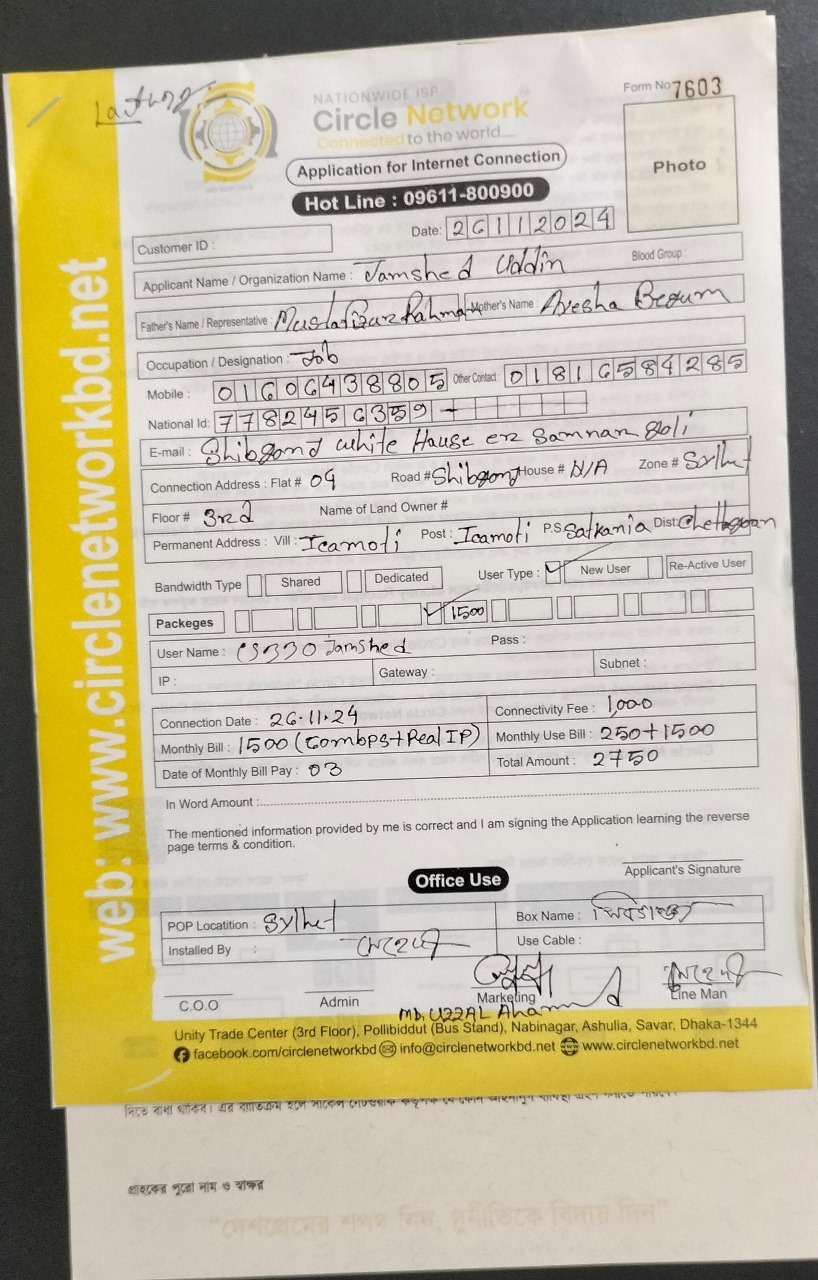 NATIONWIDE ISP
Circle Network
Connected to the world....
Form No 7603
Application for Internet Connection
Photo
Hot Line : 09611-800900
Date: 26112024
Customer ID :
Applicant Name / Organization Name : Jamshed Uddin Blood Group :
Father's Name / Representative : Mustafizur Rahman Mother's Name : Ayesha Begum
Occupation / Designation : Job
Mobile : 01606438805 Other Contact : 01816584285
National Id: 7782456359
E-mail : Shibgond white House er Samnar goli
Connection Address : Flat # 04 Road # Shibgong House # N/A Zone # Sylhet
Floor # 3rd Name of Land Owner #
Permanent Address : Vill : Icamoti Post : Icamoti P.S Satkania Dist: Chettagoan
Bandwidth Type Shared Dedicated User Type : New User Re-Active User
Packeges 1500
User Name : CS330 Jamshed Pass :
IP : Gateway : Subnet :
Connection Date : 26.11.24 Connectivity Fee : 1,000
Monthly Bill : 1500 (60mbps+Real IP) Monthly Use Bill : 250+1500
Date of Monthly Bill Pay : 03 Total Amount : 2750
In Word Amount :
The mentioned information provided by me is correct and I am signing the Application learning the reverse
page terms & condition.
Applicant's Signature
Office Use
POP Locatition : Sylhet Box Name :
Installed By : Use Cable :
C.O.O Admin Marketing Line Man
Md. Uzzal Ahammed
Unity Trade Center (3rd Floor), Pollibiddut (Bus Stand), Nabinagar, Ashulia, Savar, Dhaka-1344
facebook.com/circlenetworkbd info@circlenetworkbd.net www.circlenetworkbd.net
web: www.circlenetworkbd.net
গ্রাহকের পুরো নাম ও স্বাক্ষর
"দেশপ্রেমের শপথ নিন, দুর্নীতিকে বিদায় দিন"